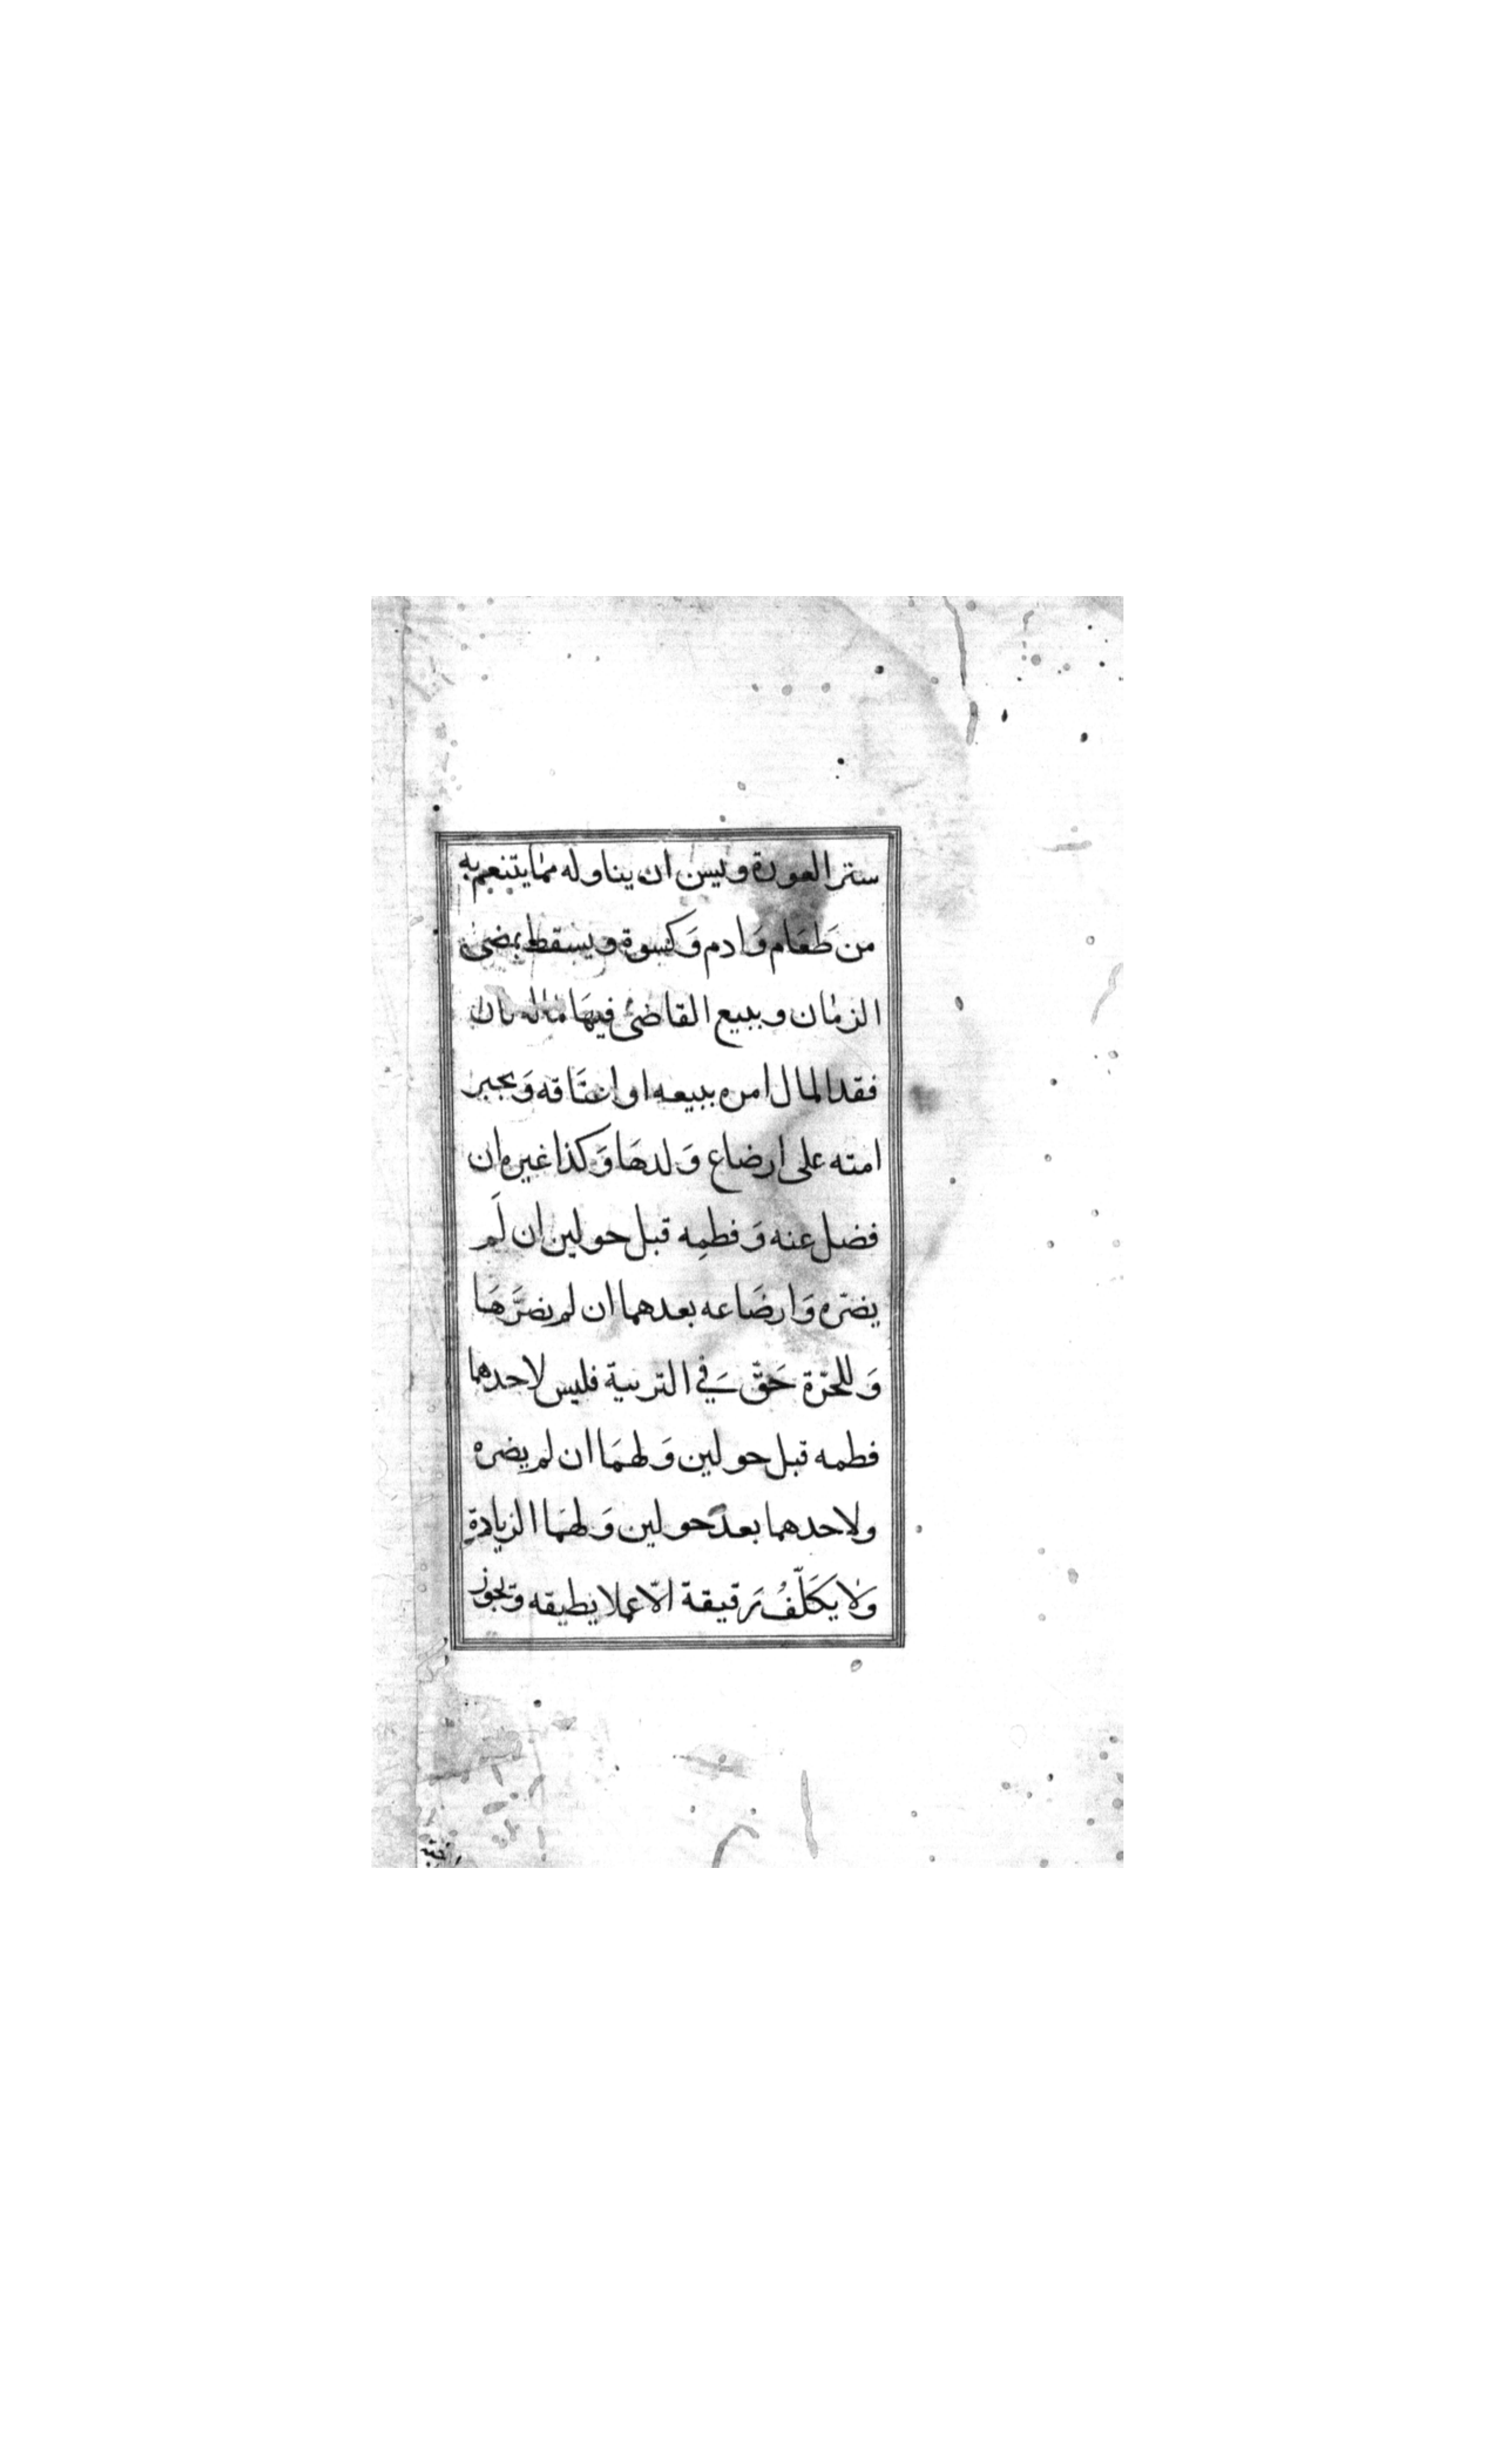 ستر العورة ويسن ان يناوله مما يتنعم به
من طَعَام وَادم وَكسوة ويسقط بمضى
الزمان ويبيع القاضى فيهَا ماله فان
فقد المال امره ببيعه او اعتَاقه وَيجبر
امته على ارضاع وَلدهَا وَكذا غيره ان
فضل عنه وَفطمِه قبل حولين ان لَم
يضرّه وَارضَاعه بعدهما ان لم يضرَّهَا
وَللحرّة حَقّ فَي التربية فليس لاحدهما
فطمه قبل حولين وَلهمَا ان لم يضره
ولاحدهما بعد حولين وَلهمَا الزيادة
وَلا يكَلّفُ رَقيقة الّا عملا يطيقه وَتجوز